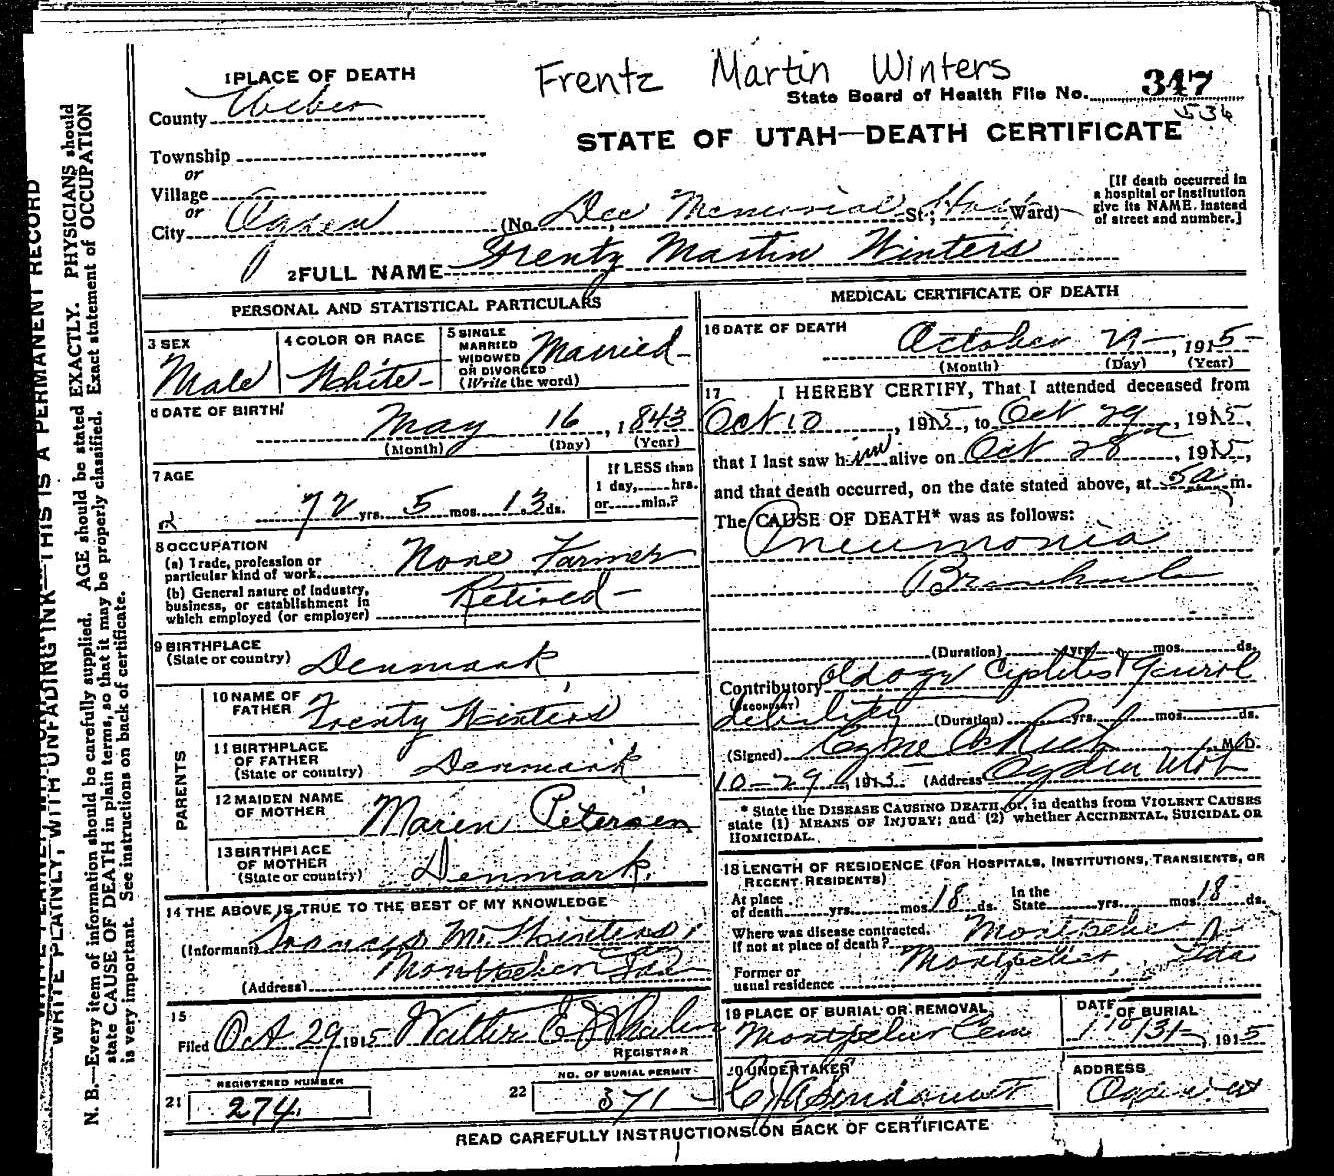 Frentz Martin Winters
1 PLACE OF DEATH
County Weber
State Board of Health File No. 347
536
STATE OF UTAH—DEATH CERTIFICATE
Township
or
Village
or
City Ogden
(No. Dee Memorial St.; Hosp Ward)
[If death occurred in
a hospital or institution
give its NAME. instead
of street and number.]
2 FULL NAME Frentz Martin Winters
PERSONAL AND STATISTICAL PARTICULARS
3 SEX
Male
4 COLOR OR RACE
White
5 SINGLE
MARRIED
WIDOWED
OR DIVORCED
(Write the word)
Married
6 DATE OF BIRTH
May 16, 1843
(Month) (Day) (Year)
7 AGE
72 yrs. 5 mos. 13 ds.
If LESS than
1 day,......hrs.
or......min.?
8 OCCUPATION
(a) Trade, profession or
particular kind of work. None Farmer
(b) General nature of Industry,
business, or establishment in
which employed (or employer) Retired
9 BIRTHPLACE
(State or country) Denmark
PARENTS
10 NAME OF
FATHER Frentz Winters
11 BIRTHPLACE
OF FATHER
(State or country) Denmark
12 MAIDEN NAME
OF MOTHER Maren Petersen
13 BIRTHPLACE
OF MOTHER
(State or country) Denmark.
14 THE ABOVE IS TRUE TO THE BEST OF MY KNOWLEDGE
(Informant) M. Winters
(Address) Montpelier Ida
15
Filed Oct 29 1915 Walter E J Whalen
REGISTRAR
REGISTERED NUMBER
21 274
NO. OF BURIAL PERMIT
22 371
MEDICAL CERTIFICATE OF DEATH
16 DATE OF DEATH
October 29, 1915
(Month) (Day) (Year)
17 I HEREBY CERTIFY, That I attended deceased from
Oct 10, 1915, to Oct 29, 1915,
that I last saw him alive on Oct 28, 1915,
and that death occurred, on the date stated above, at 5 a m.
The CAUSE OF DEATH* was as follows:
Pneumonia
Bronchial
(Duration) yrs. mos. ds.
Contributory Old age
(SECONDARY)
debility (Duration) yrs. mos. ds.
(Signed) M.D.
10-29, 1915. (Address) Ogden Utah
* State the DISEASE CAUSING DEATH, or, in deaths from VIOLENT CAUSES
state (1) MEANS OF INJURY; and (2) whether ACCIDENTAL, SUICIDAL OR
HOMICIDAL.
18 LENGTH OF RESIDENCE (FOR HOSPITALS, INSTITUTIONS, TRANSIENTS, OR
RECENT RESIDENTS)
At place of death yrs. mos. 18 ds. In the State yrs. mos. 18 ds.
Where was disease contracted,
If not at place of death? Montpelier
Former or
usual residence Montpelier, Ida
19 PLACE OF BURIAL OR REMOVAL
Montpelier Cem
DATE OF BURIAL
10/31, 1915
20 UNDERTAKER
ADDRESS
Ogden Ut
READ CAREFULLY INSTRUCTIONS ON BACK OF CERTIFICATE
WRITE PLAINLY, WITH UNFADING INK—THIS IS A PERMANENT RECORD
N. B.—Every item of information should be carefully supplied. AGE should be stated EXACTLY. PHYSICIANS should
state CAUSE OF DEATH in plain terms, so that it may be properly classified. Exact statement of OCCUPATION
is very important. See instructions on back of certificate.